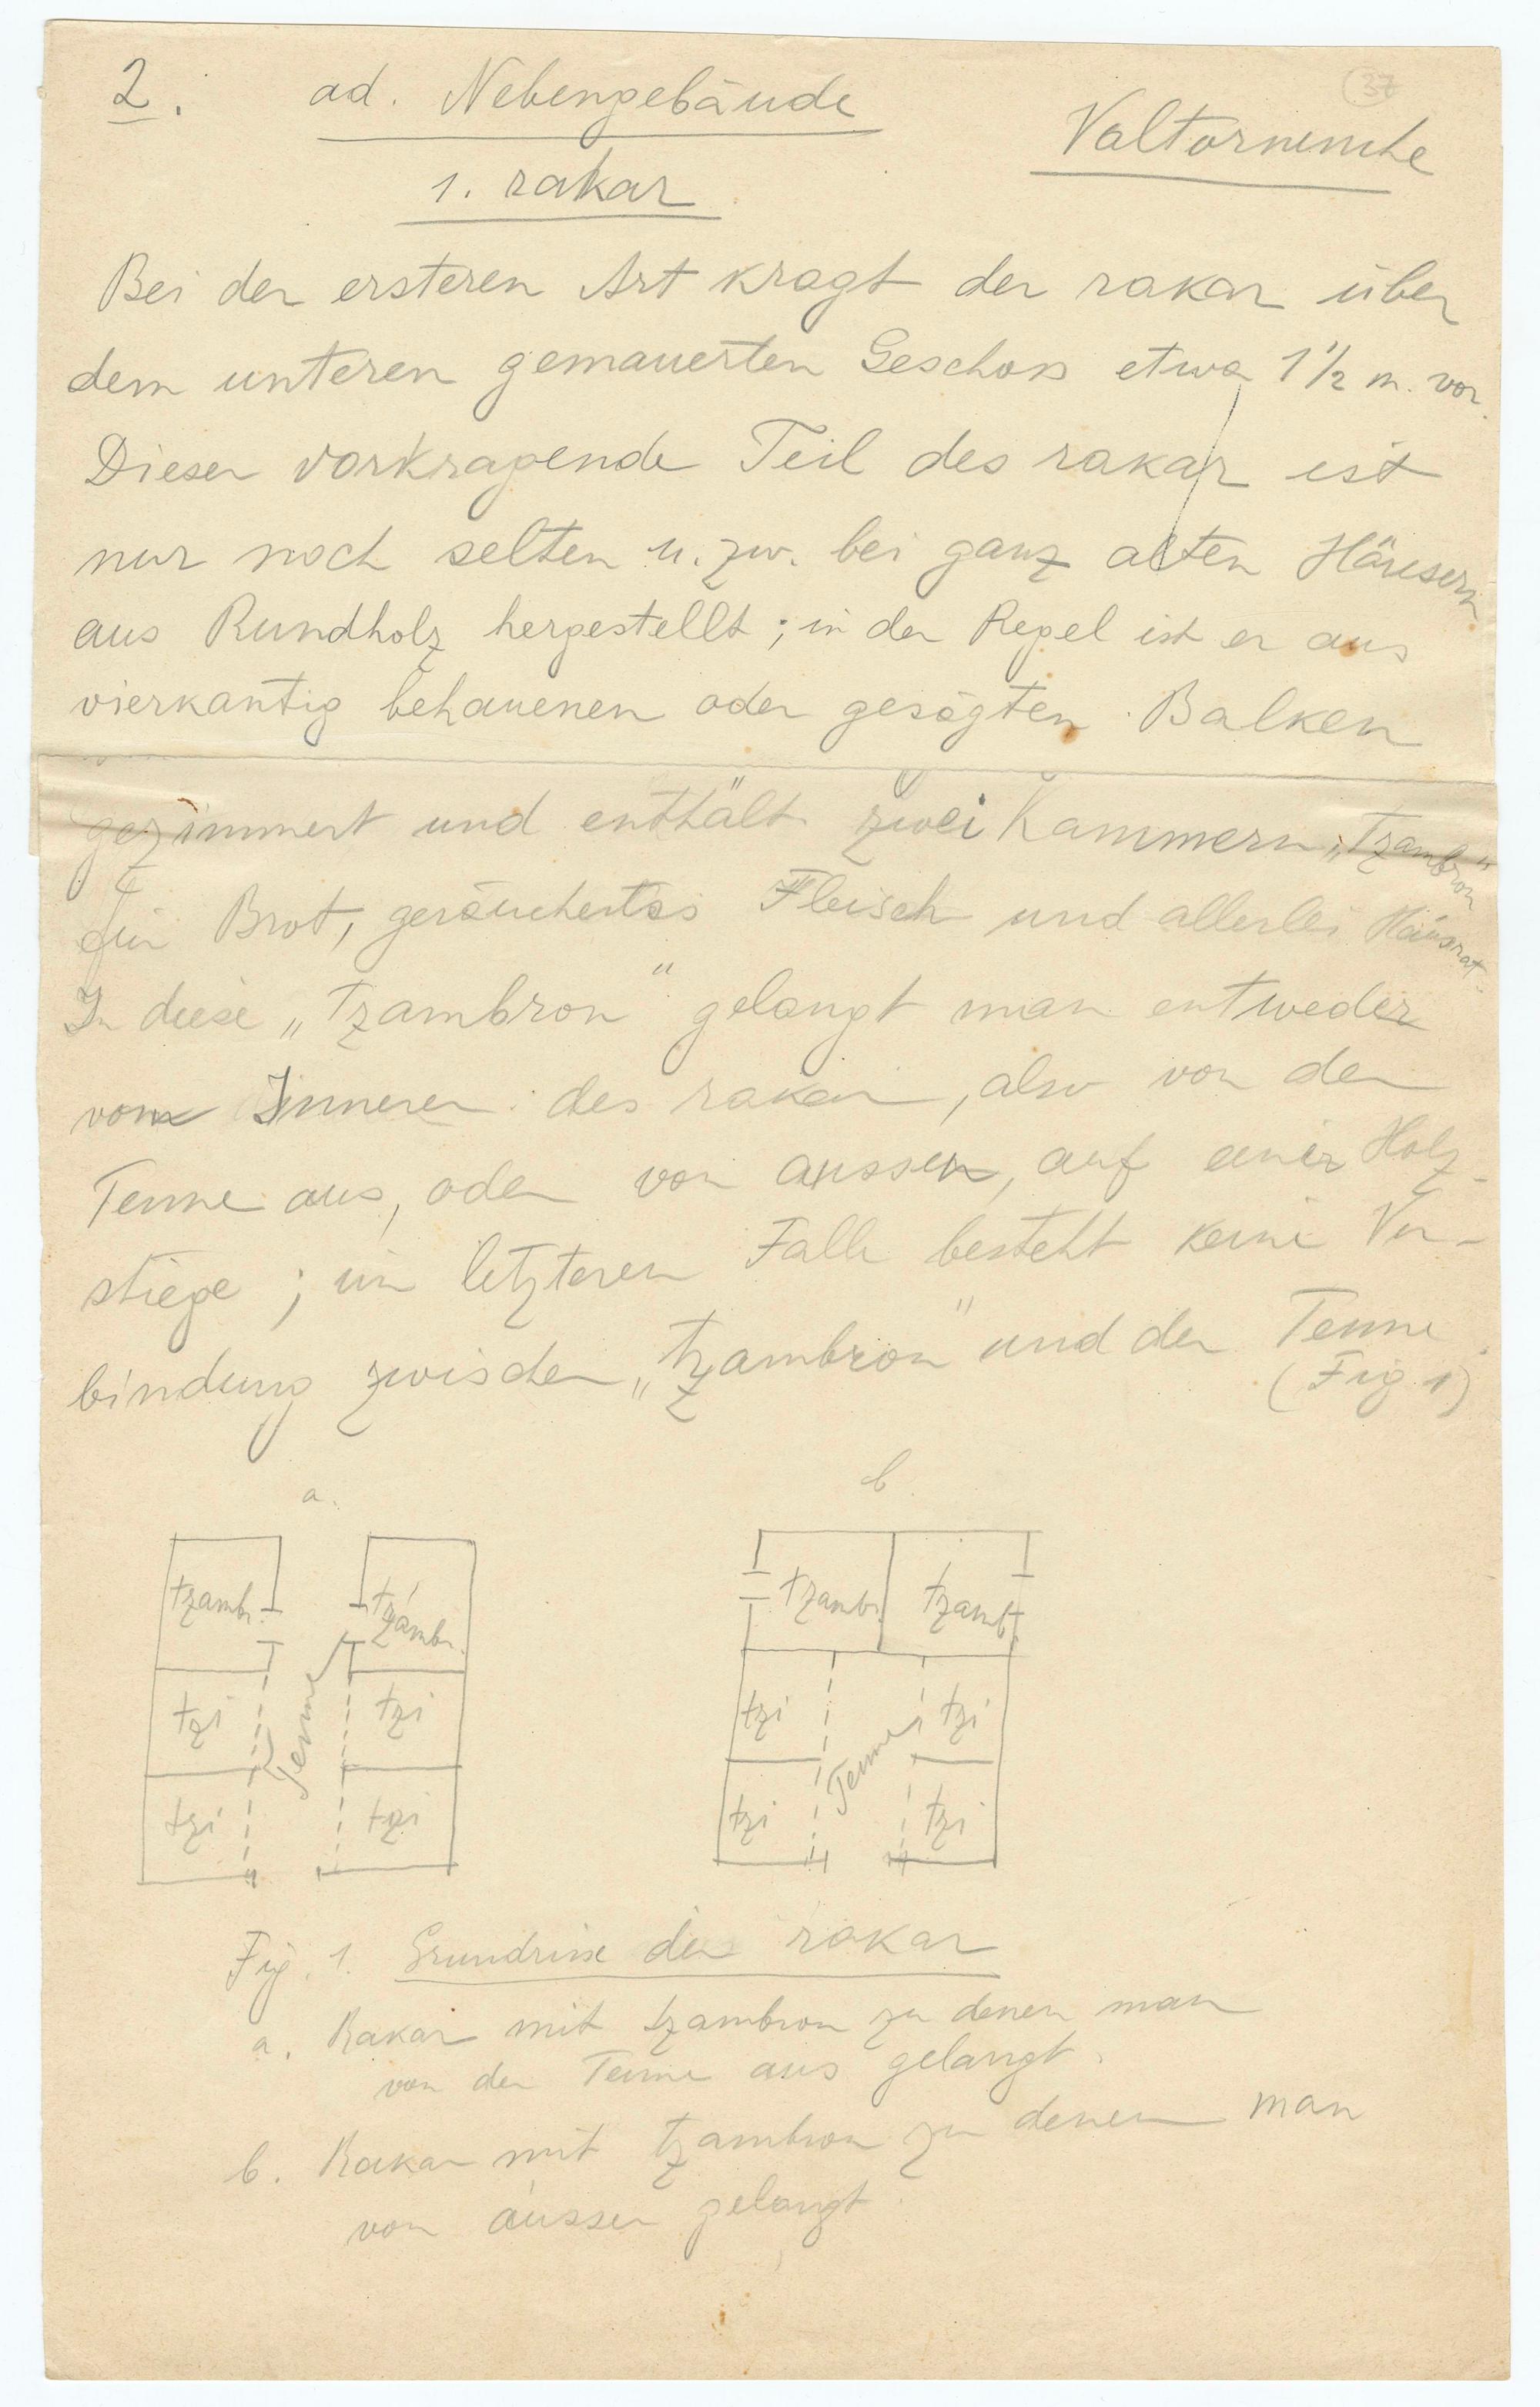 2. ad. Nebengebäude
37
Valtornenche
1. rakar
Bei der ersteren Art kragt der rakar über
dem unteren gemauerten Geschoss etwa 1 1/2 m. vor.
Dieser vorkragende Teil des rakar ist
nur noch selten u. zw. bei ganz alten Häusern
aus Rundholz hergestellt; in der Regel ist er aus
vierkantig behauenen oder gesägten Balken
gezimmert und enthält zwei Kammern „Tzambron"
für Brot, geräuchertes Fleisch und allerlei Hausrat.
In diese „Tzambron" gelangt man entweder
vom Inneren des rakar, also von der
Tenne aus, oder von aussen, auf einer Holz-
stiege; im letzteren Falle besteht keine Ver-
bindung zwischen „tzambron" und der Tenne.
(Fig 1)
a. b.
tzambr. tzambr. tzambr. tzambr.
tzi Tenne tzi tzi Tenne tzi
tzi tzi tzi tzi
Fig. 1. Grundrisse der rakar
a. Rakar mit tzambron zu denen man
von der Tenne aus gelangt.
b. Rakar mit tzambron zu denen man
von aussen gelangt.